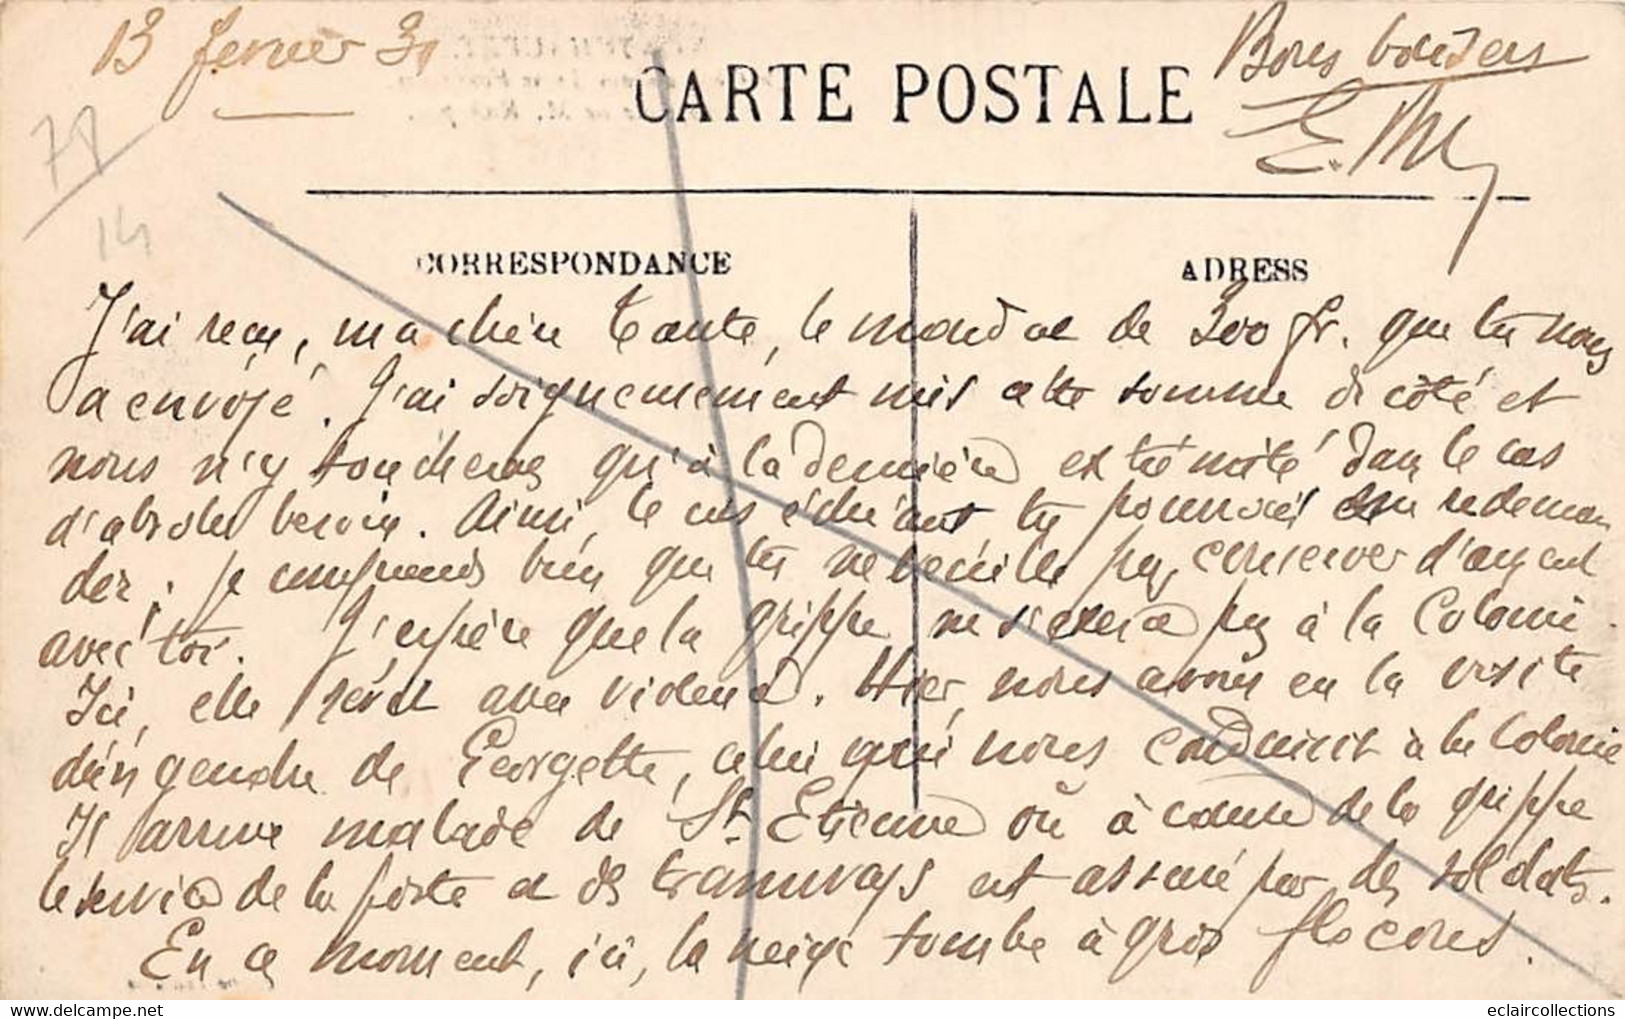 13 fevrier 31
Bons baisers
CARTE POSTALE
78
14
CORRESPONDANCE
ADRESS
J'ai reçu, ma chère Tante, le mandat de 300 fr. que tu nous
a envoyé. J'ai soigneusement mis cette somme de côté et
nous n'y toucherons qu'à la dernière extrémité dans le cas
d'absolu besoin. Ainsi, le cas échéant tu pourrais en redeman
der. Je comprends bien que tu ne veuilles pas conserver d'argent
avec toi. J'espère que la grippe ne sera pas à la Colonie.
Ici, elle sévit avec violence. Hier, nous avons eu la visite
d'un gendre de Georgette, celui qui nous conduisit à la Colonie
Il arrive malade de St Etienne où à cause de la grippe
le service de la poste et des tramways est assuré par des soldats.
En ce moment, ici, la neige tombe à gros flocons.
eclaircollections